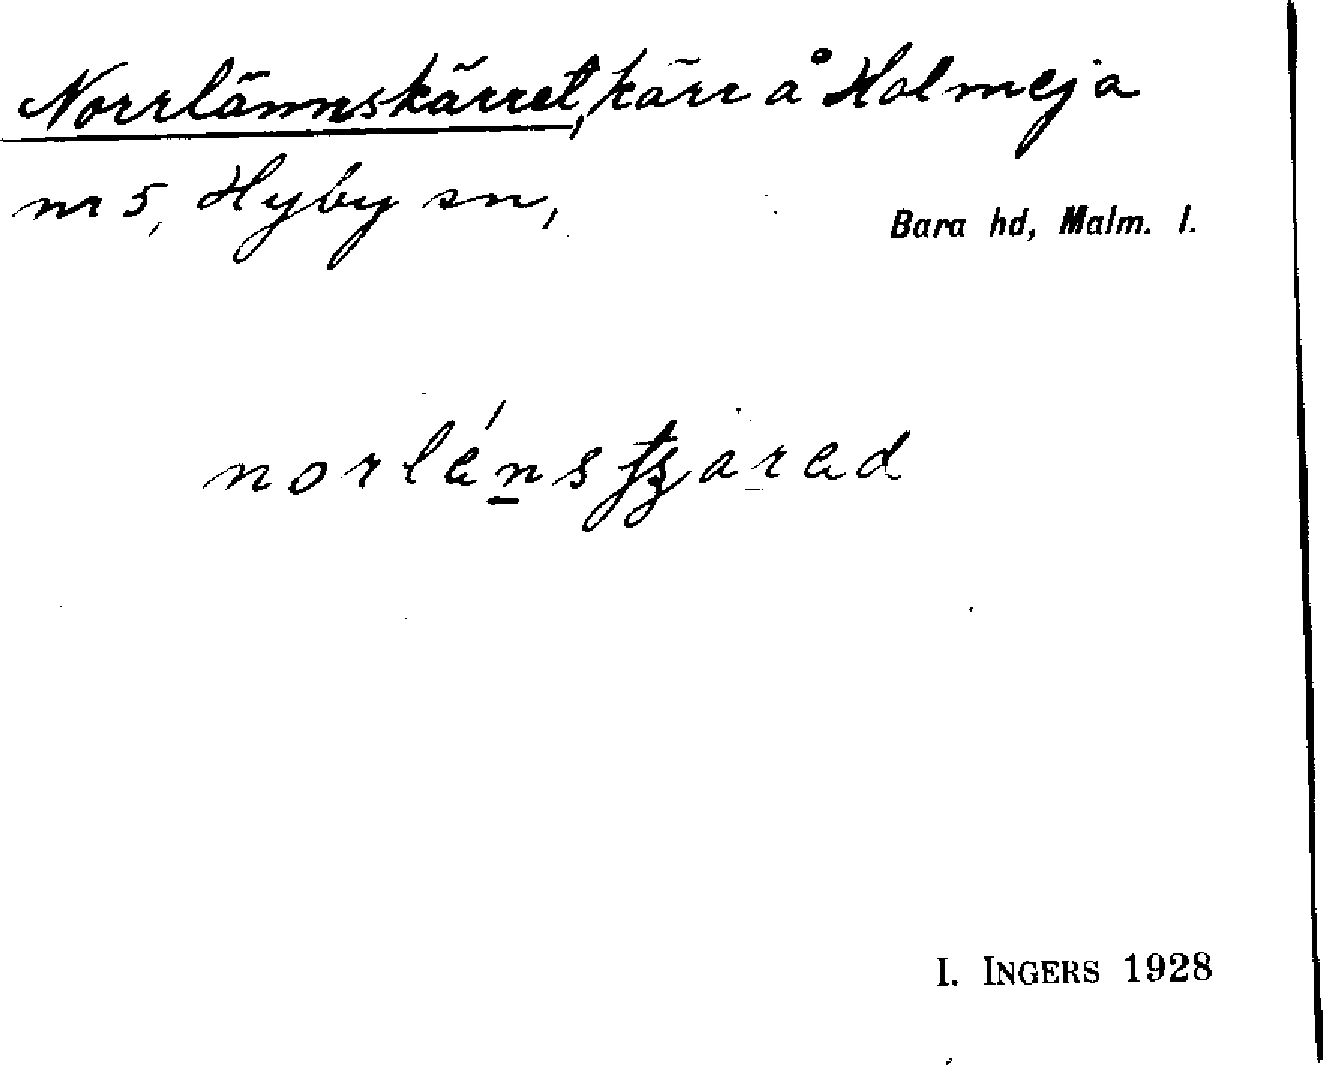 Norrlännskärret, kärr å Holmeja
nr 5, Hyby sn, Bara hd, Malm. l.
I. INGERS 1928